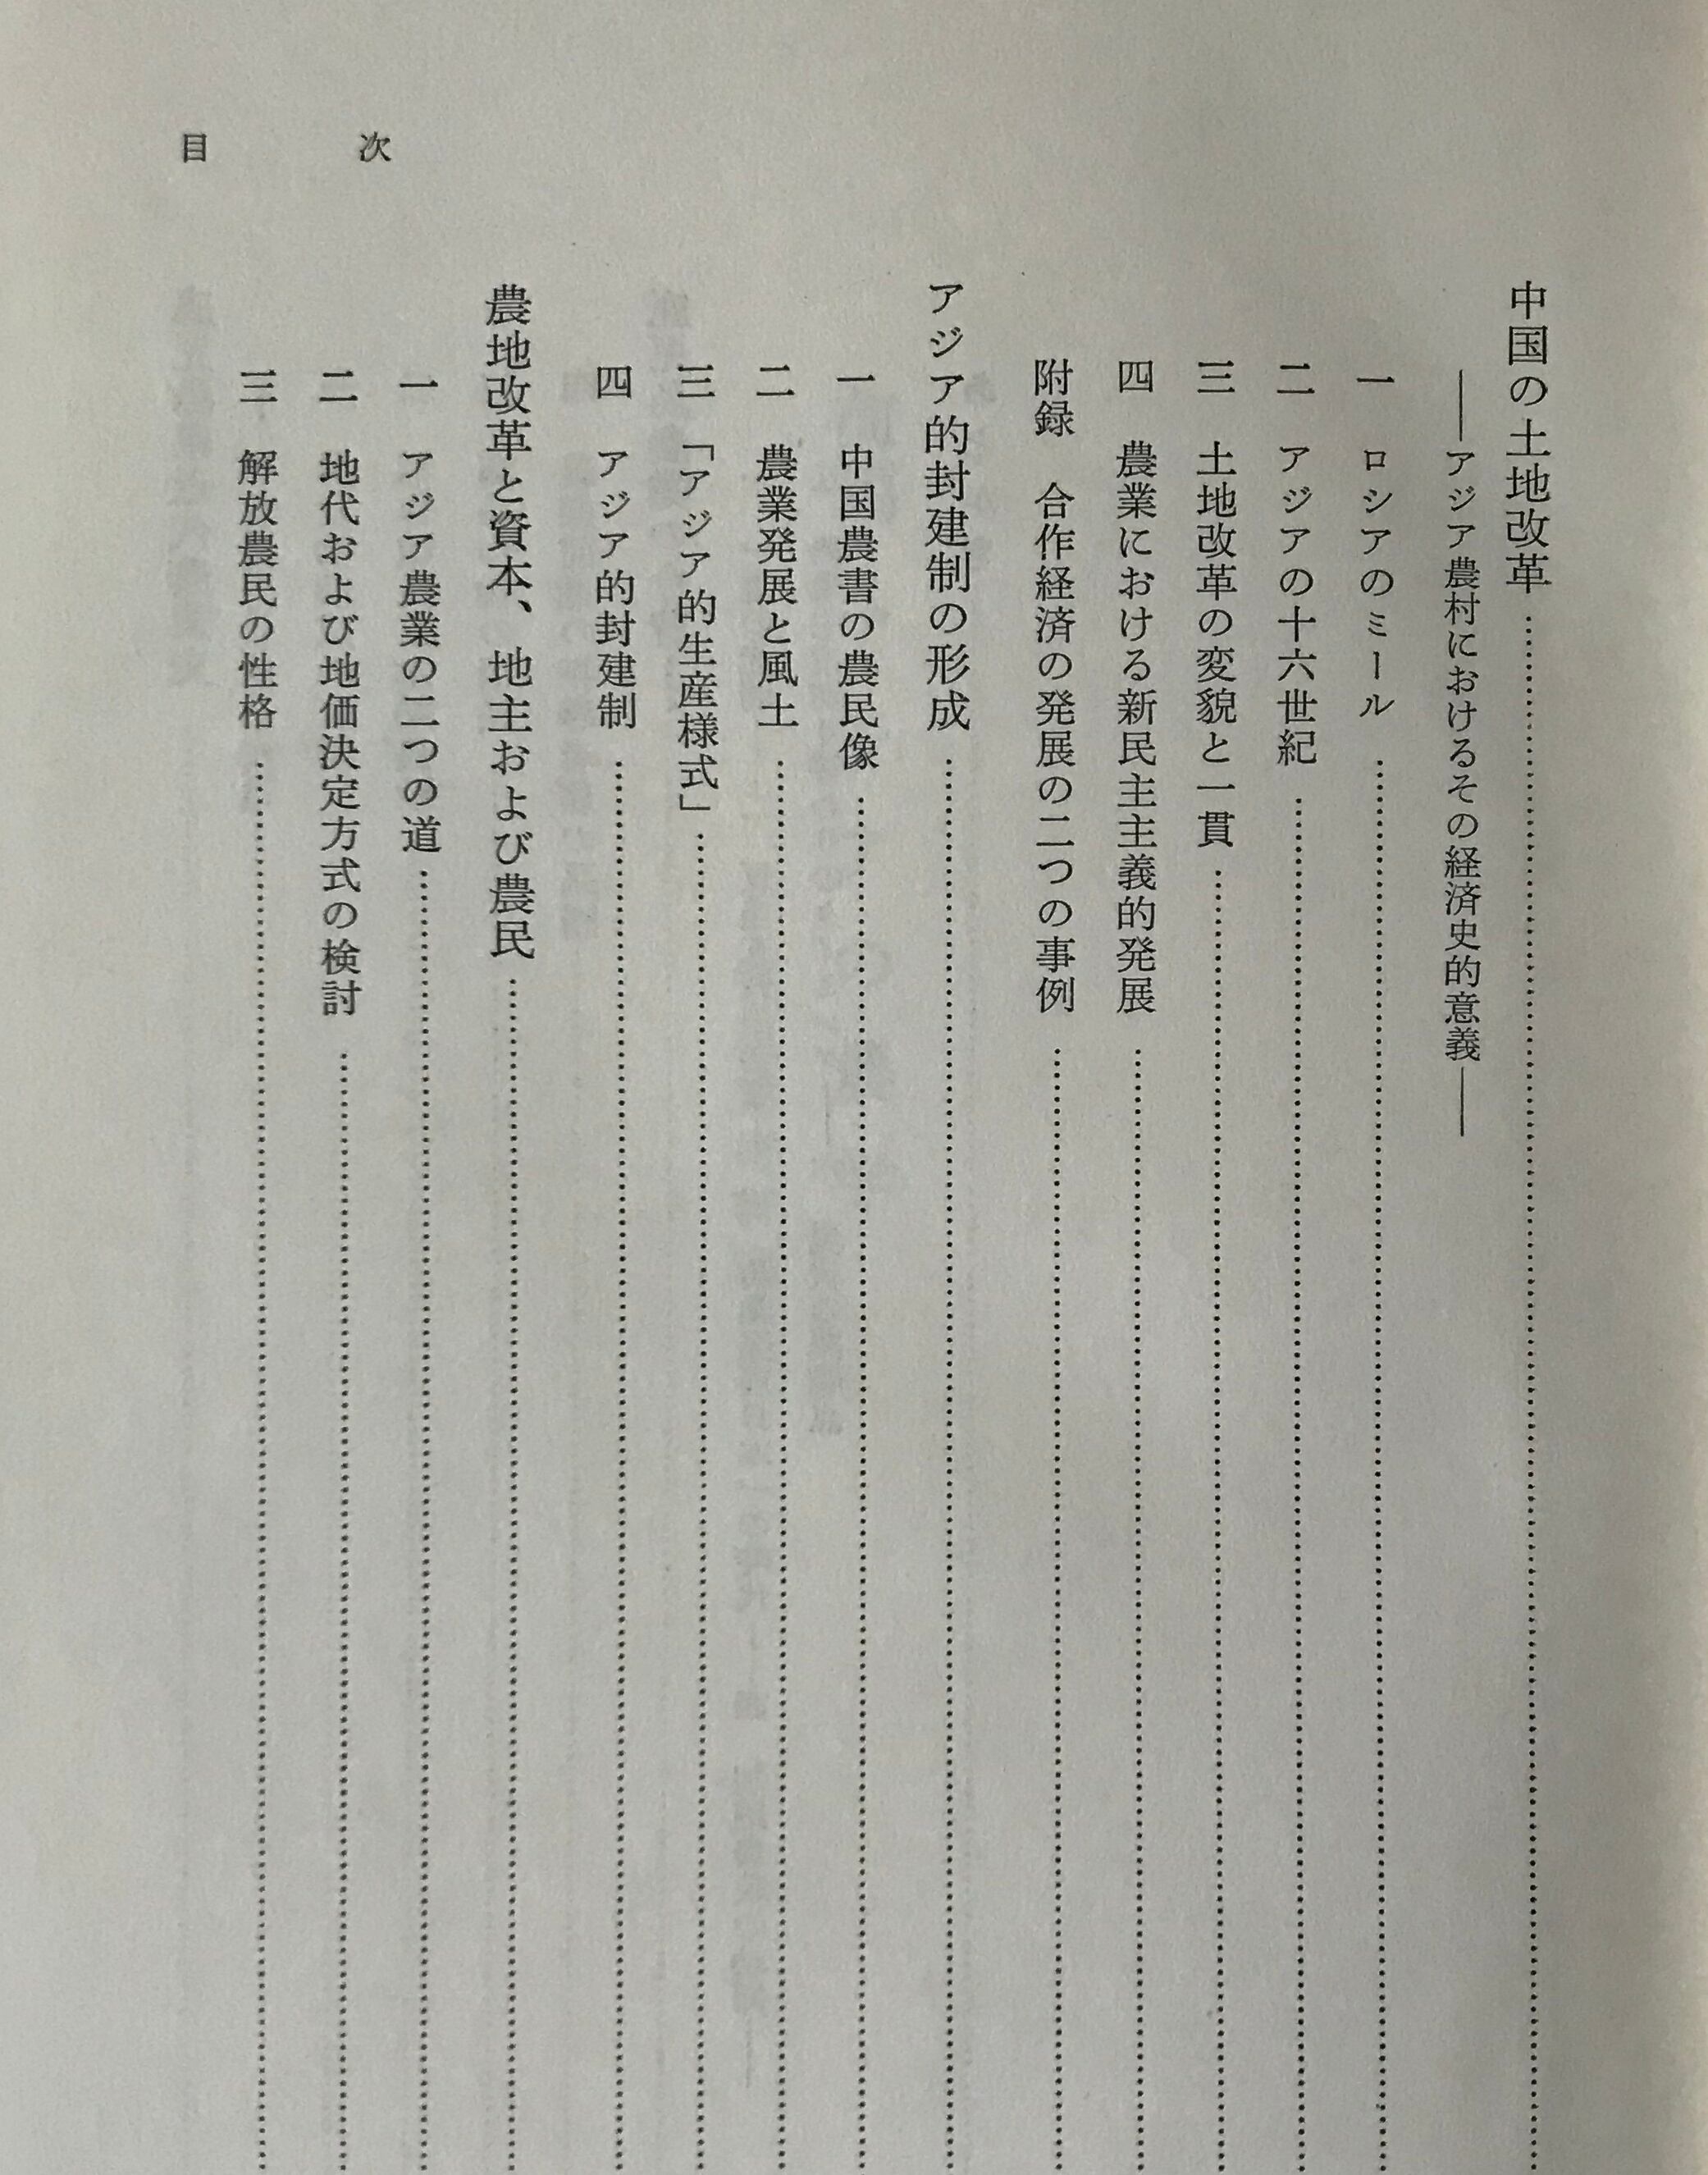 目次
中国の土地改革
――アジア農村におけるその経済史的意義――
一 ロシアのミール
二 アジアの十六世紀
三 土地改革の変貌と一貫
四 農業における新民主主義的発展
附録 合作経済の発展の二つの事例
アジア的封建制の形成
一 中国農書の農民像
二 農業発展と風土
三 「アジア的生産様式」
四 アジア的封建制
農地改革と資本、地主および農民
一 アジア農業の二つの道
二 地代および地価決定方式の検討
三 解放農民の性格